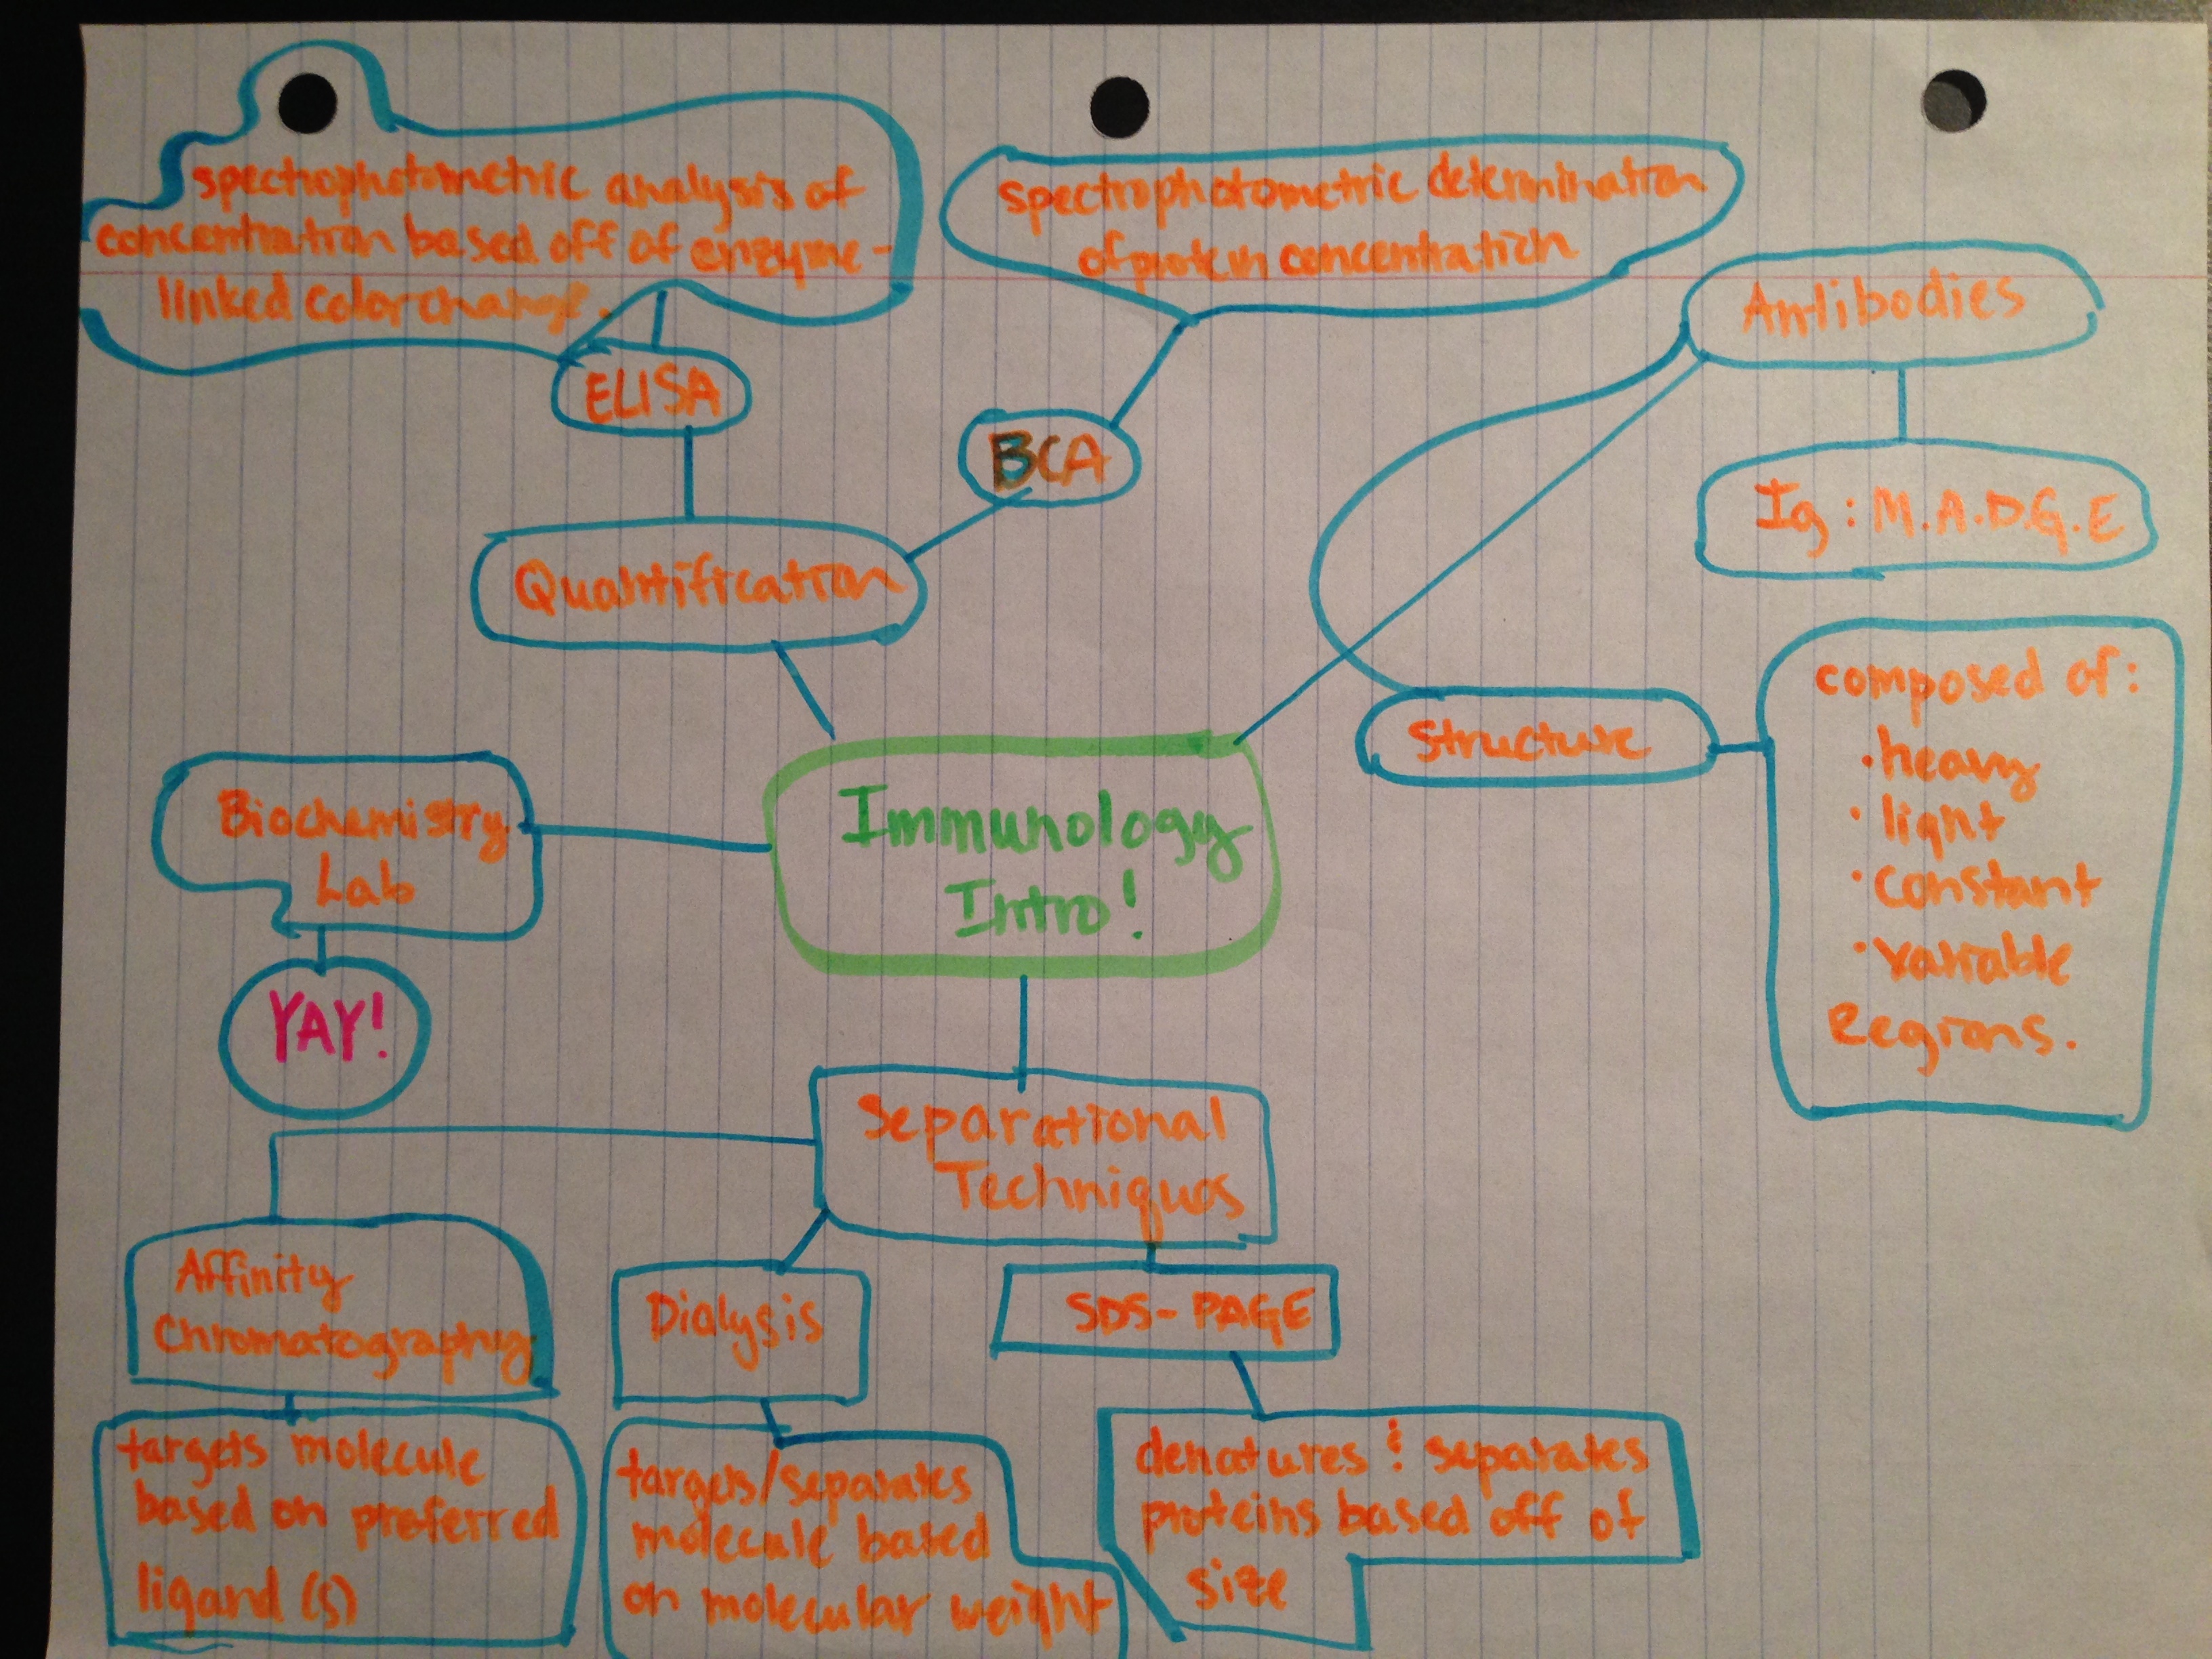 spectrophotometric analysis of
concentration based off of enzyme-
linked color change.
spectrophotometric determination
of protein concentration
Antibodies
ELISA
BCA
Ig: M.A.D.G.E
Quantification
Structure
composed of:
• heavy
• light
• constant
• variable
Regions.
Biochemistry
Lab
YAY!
Immunology
Intro!
Separational
Techniques
Affinity
Chromatography
Dialysis
SDS-PAGE
targets molecule
based on preferred
ligand (s)
targets/separates
molecule based
on molecular weight
denatures & separates
proteins based off of
size